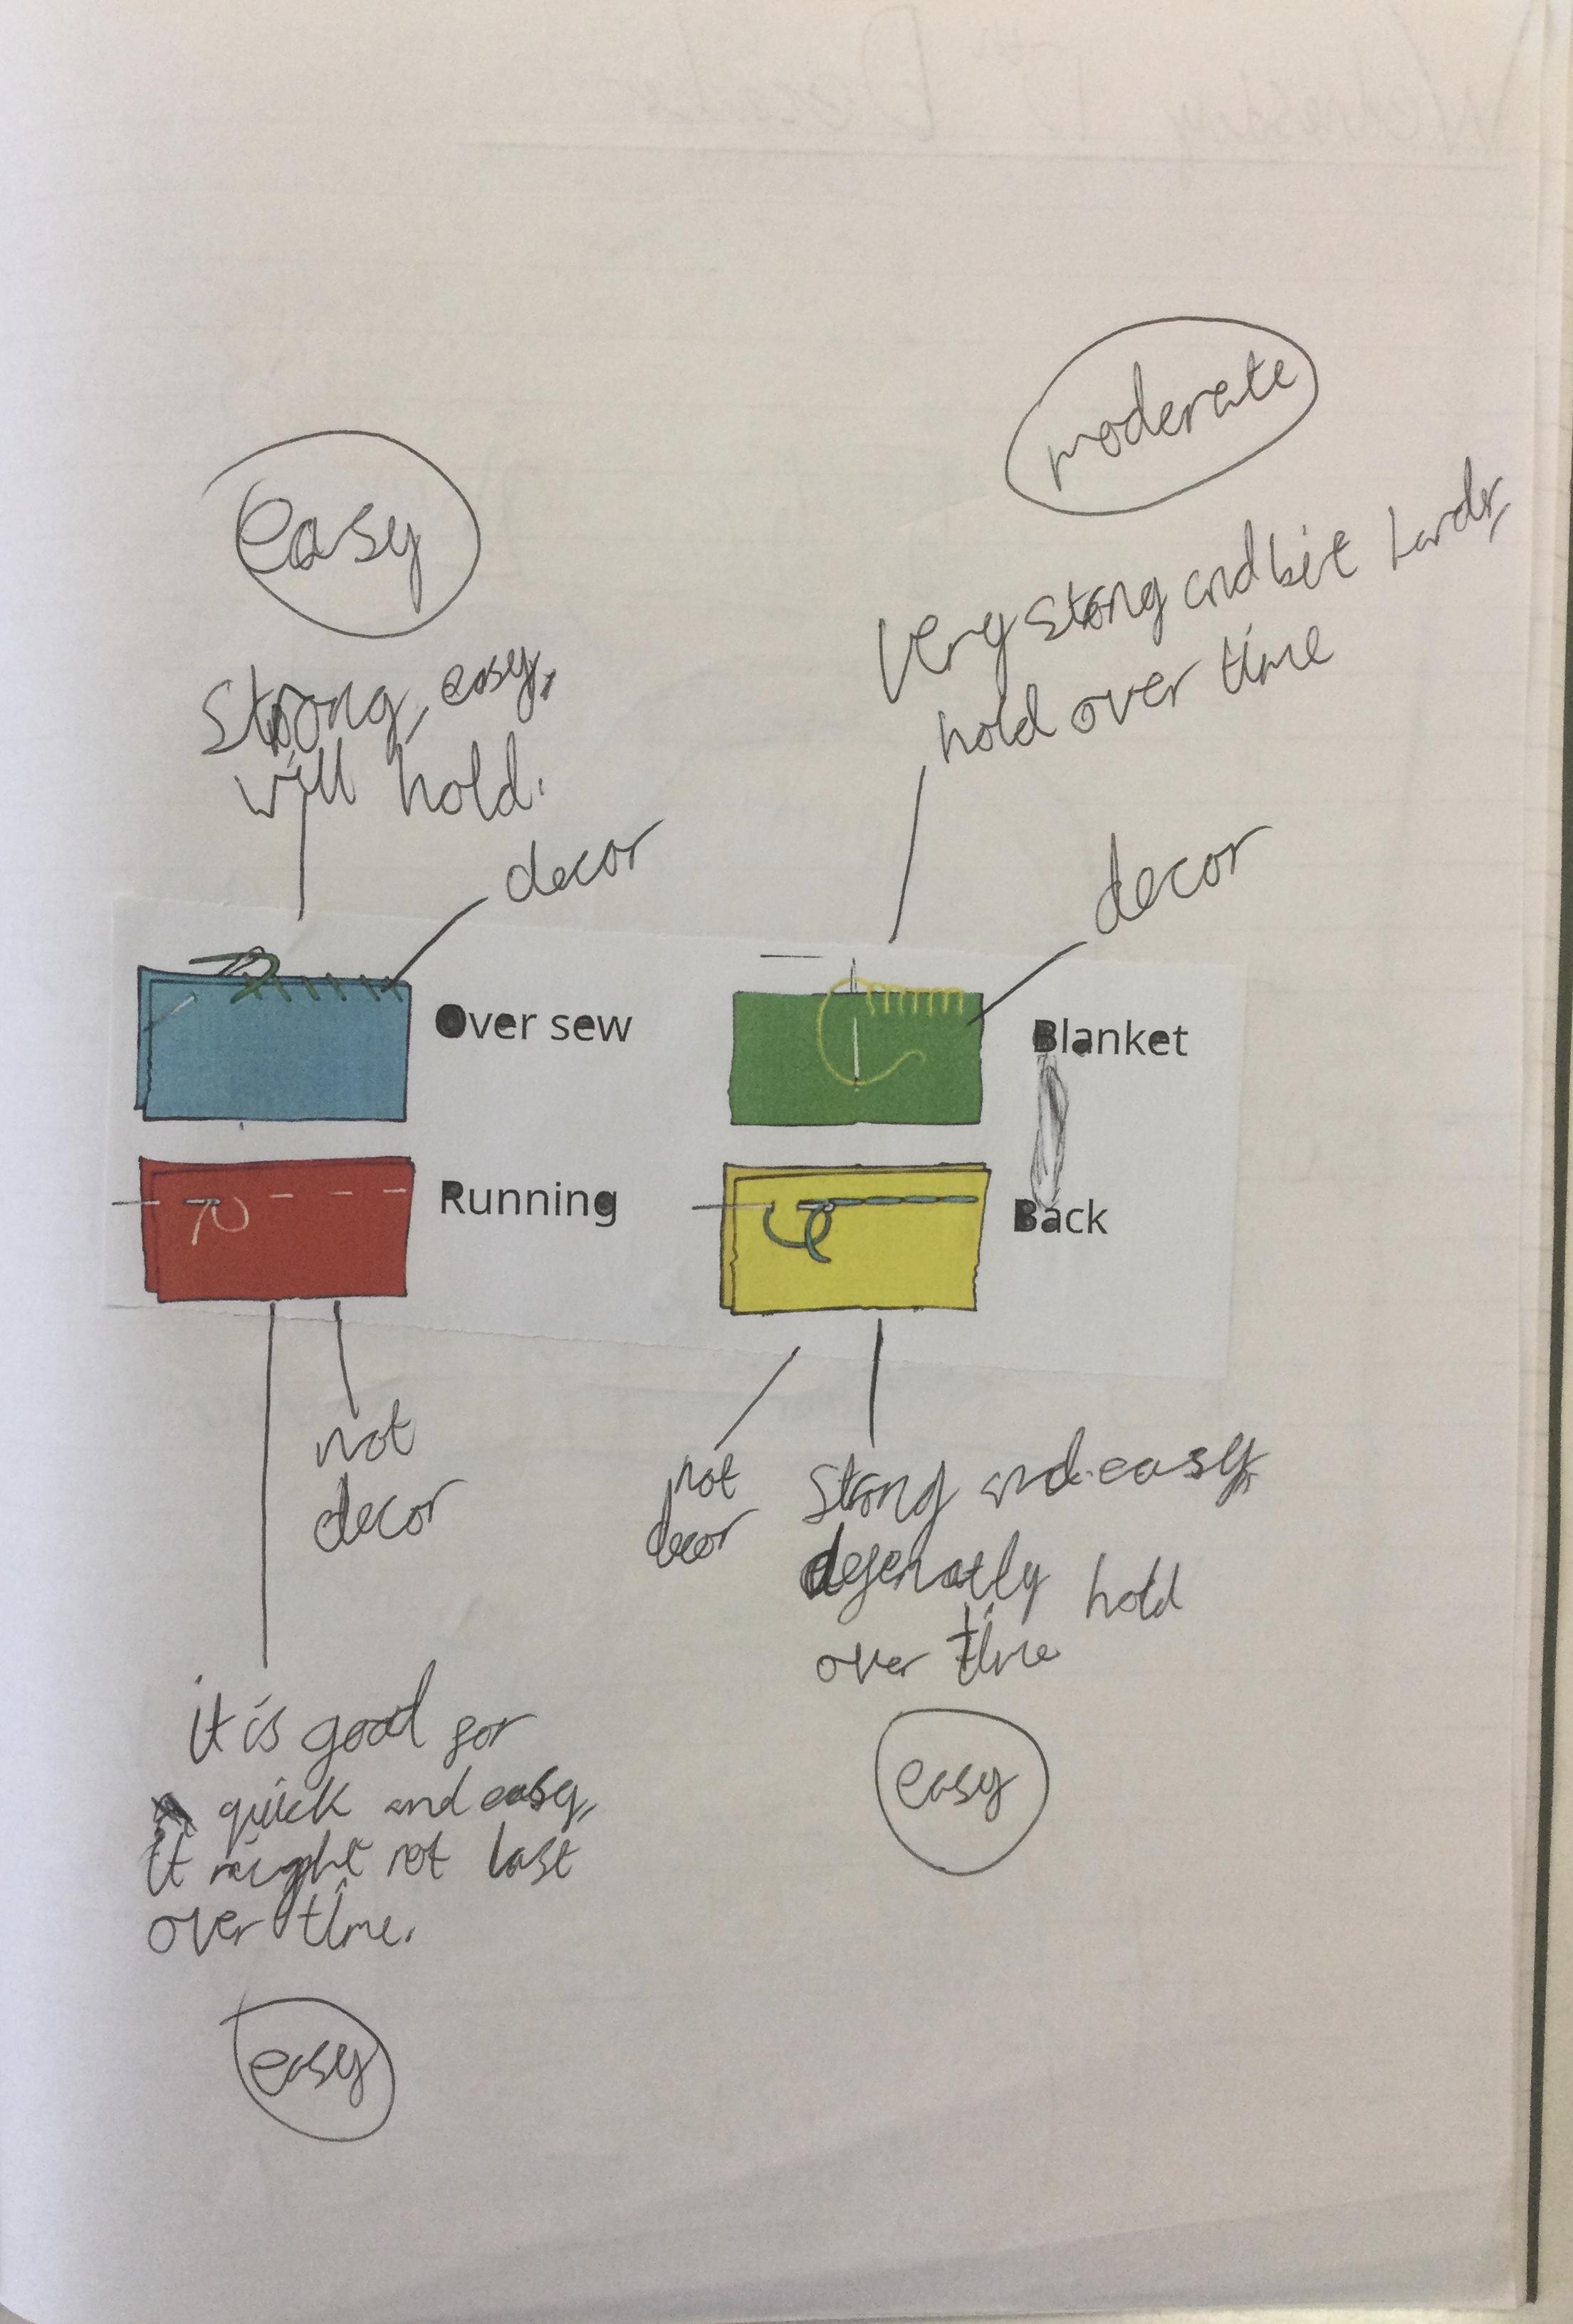 moderate
easy
Very strong and bit hard,
hold over time
Strong, easy,
will hold.
decor
decor
Over sew
Blanket
Running
Back
not
decor
not
decor
Strong and easy,
defenatly hold
over time
easy
it is good for
quick and easy,
it might not last
over time.
easy